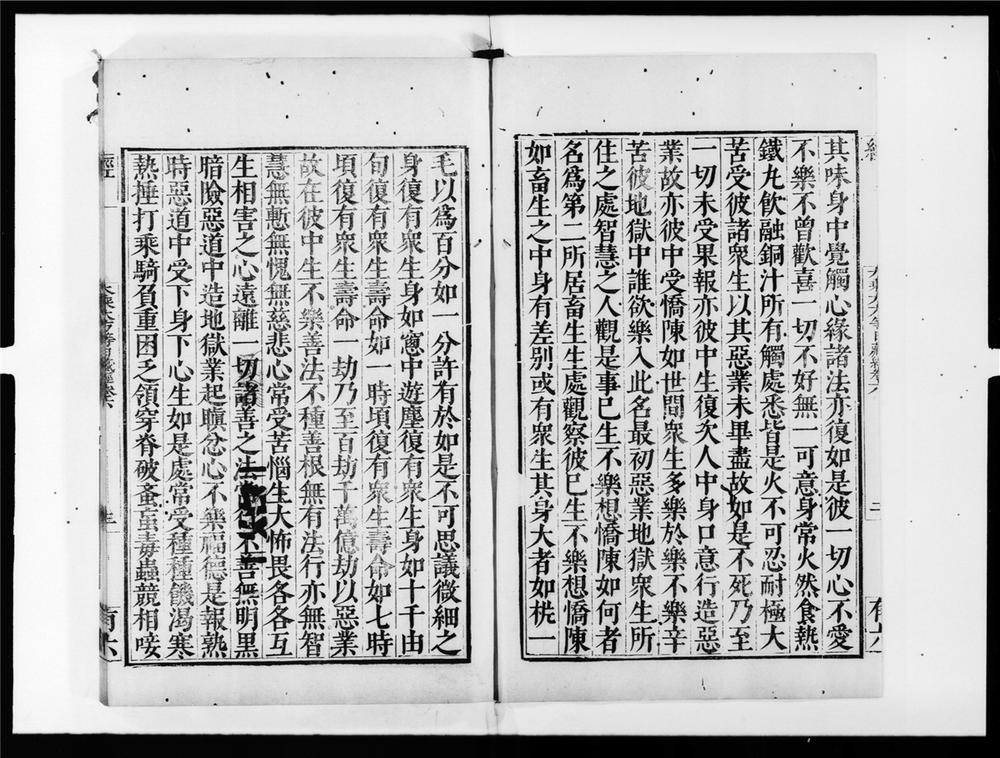 其味身中覺觸心緣諸法亦復如是彼一切心不愛
不樂不曾歡喜一切不好無一可意身常火然食熱
鐵九飲融銅汁所有觸處悉皆是火不可忍耐極大
苦受彼諸衆生以其惡業未畢盡故如是不死乃至
一切未受果報亦彼中生復次人中身口意行造惡
業故亦彼中受憍陳如世間衆生多樂於樂不樂辛
苦彼地獄中誰欲樂入此名最初惡業地獄衆生所
住之處智慧之人觀是事已生不樂想憍陳如何者
名爲第二所居畜生生處觀察彼已生不樂想憍陳
如畜生之中身有差别或有衆生其身大者如析一
毛以爲百分如一分許有於如是不可思議微細之
身復有衆生身如窻中遊塵復有衆生身如十千由
旬復有衆生壽命如一時頃復有衆生壽命如七時
頃復有衆生壽命一劫乃至百劫千萬億劫以惡業
故在彼中生不樂善法不種善根無有法行亦無智
慧無慙無愧無慈悲心常受苦惱生大怖畏各各互
生相害之心遠離一切諸善之法不善無明黑
暗險惡道中造地獄業起瞋忿心不樂福德是報熟
時惡道中受下身下心生如是處常受種種饑渴寒
熱捶打乘騎負重困乏領穿脊破蚤䖟毒蟲競相唼
經
三
有六